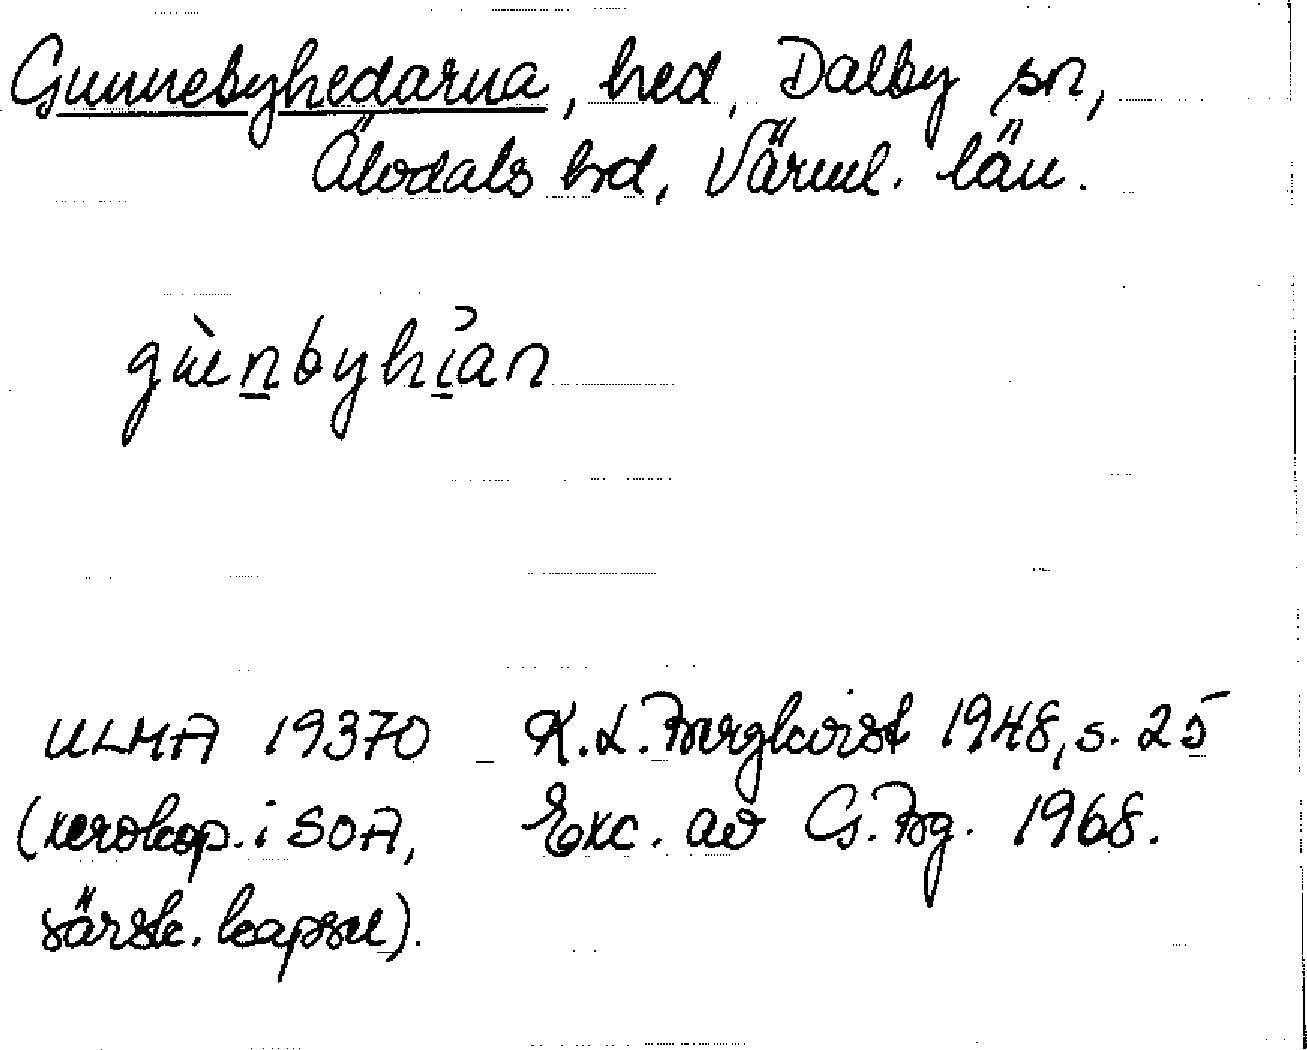 Gunnebyhedarna, hed, Dalby sn,
Älvdals hd, Värml. län.
gùnbyhian
ULMA 19370 K. L. Bergkvist 1948, s. 25
(xerokop. i SOA, Exc. av G. Bg. 1968.
särsk. kapsel).